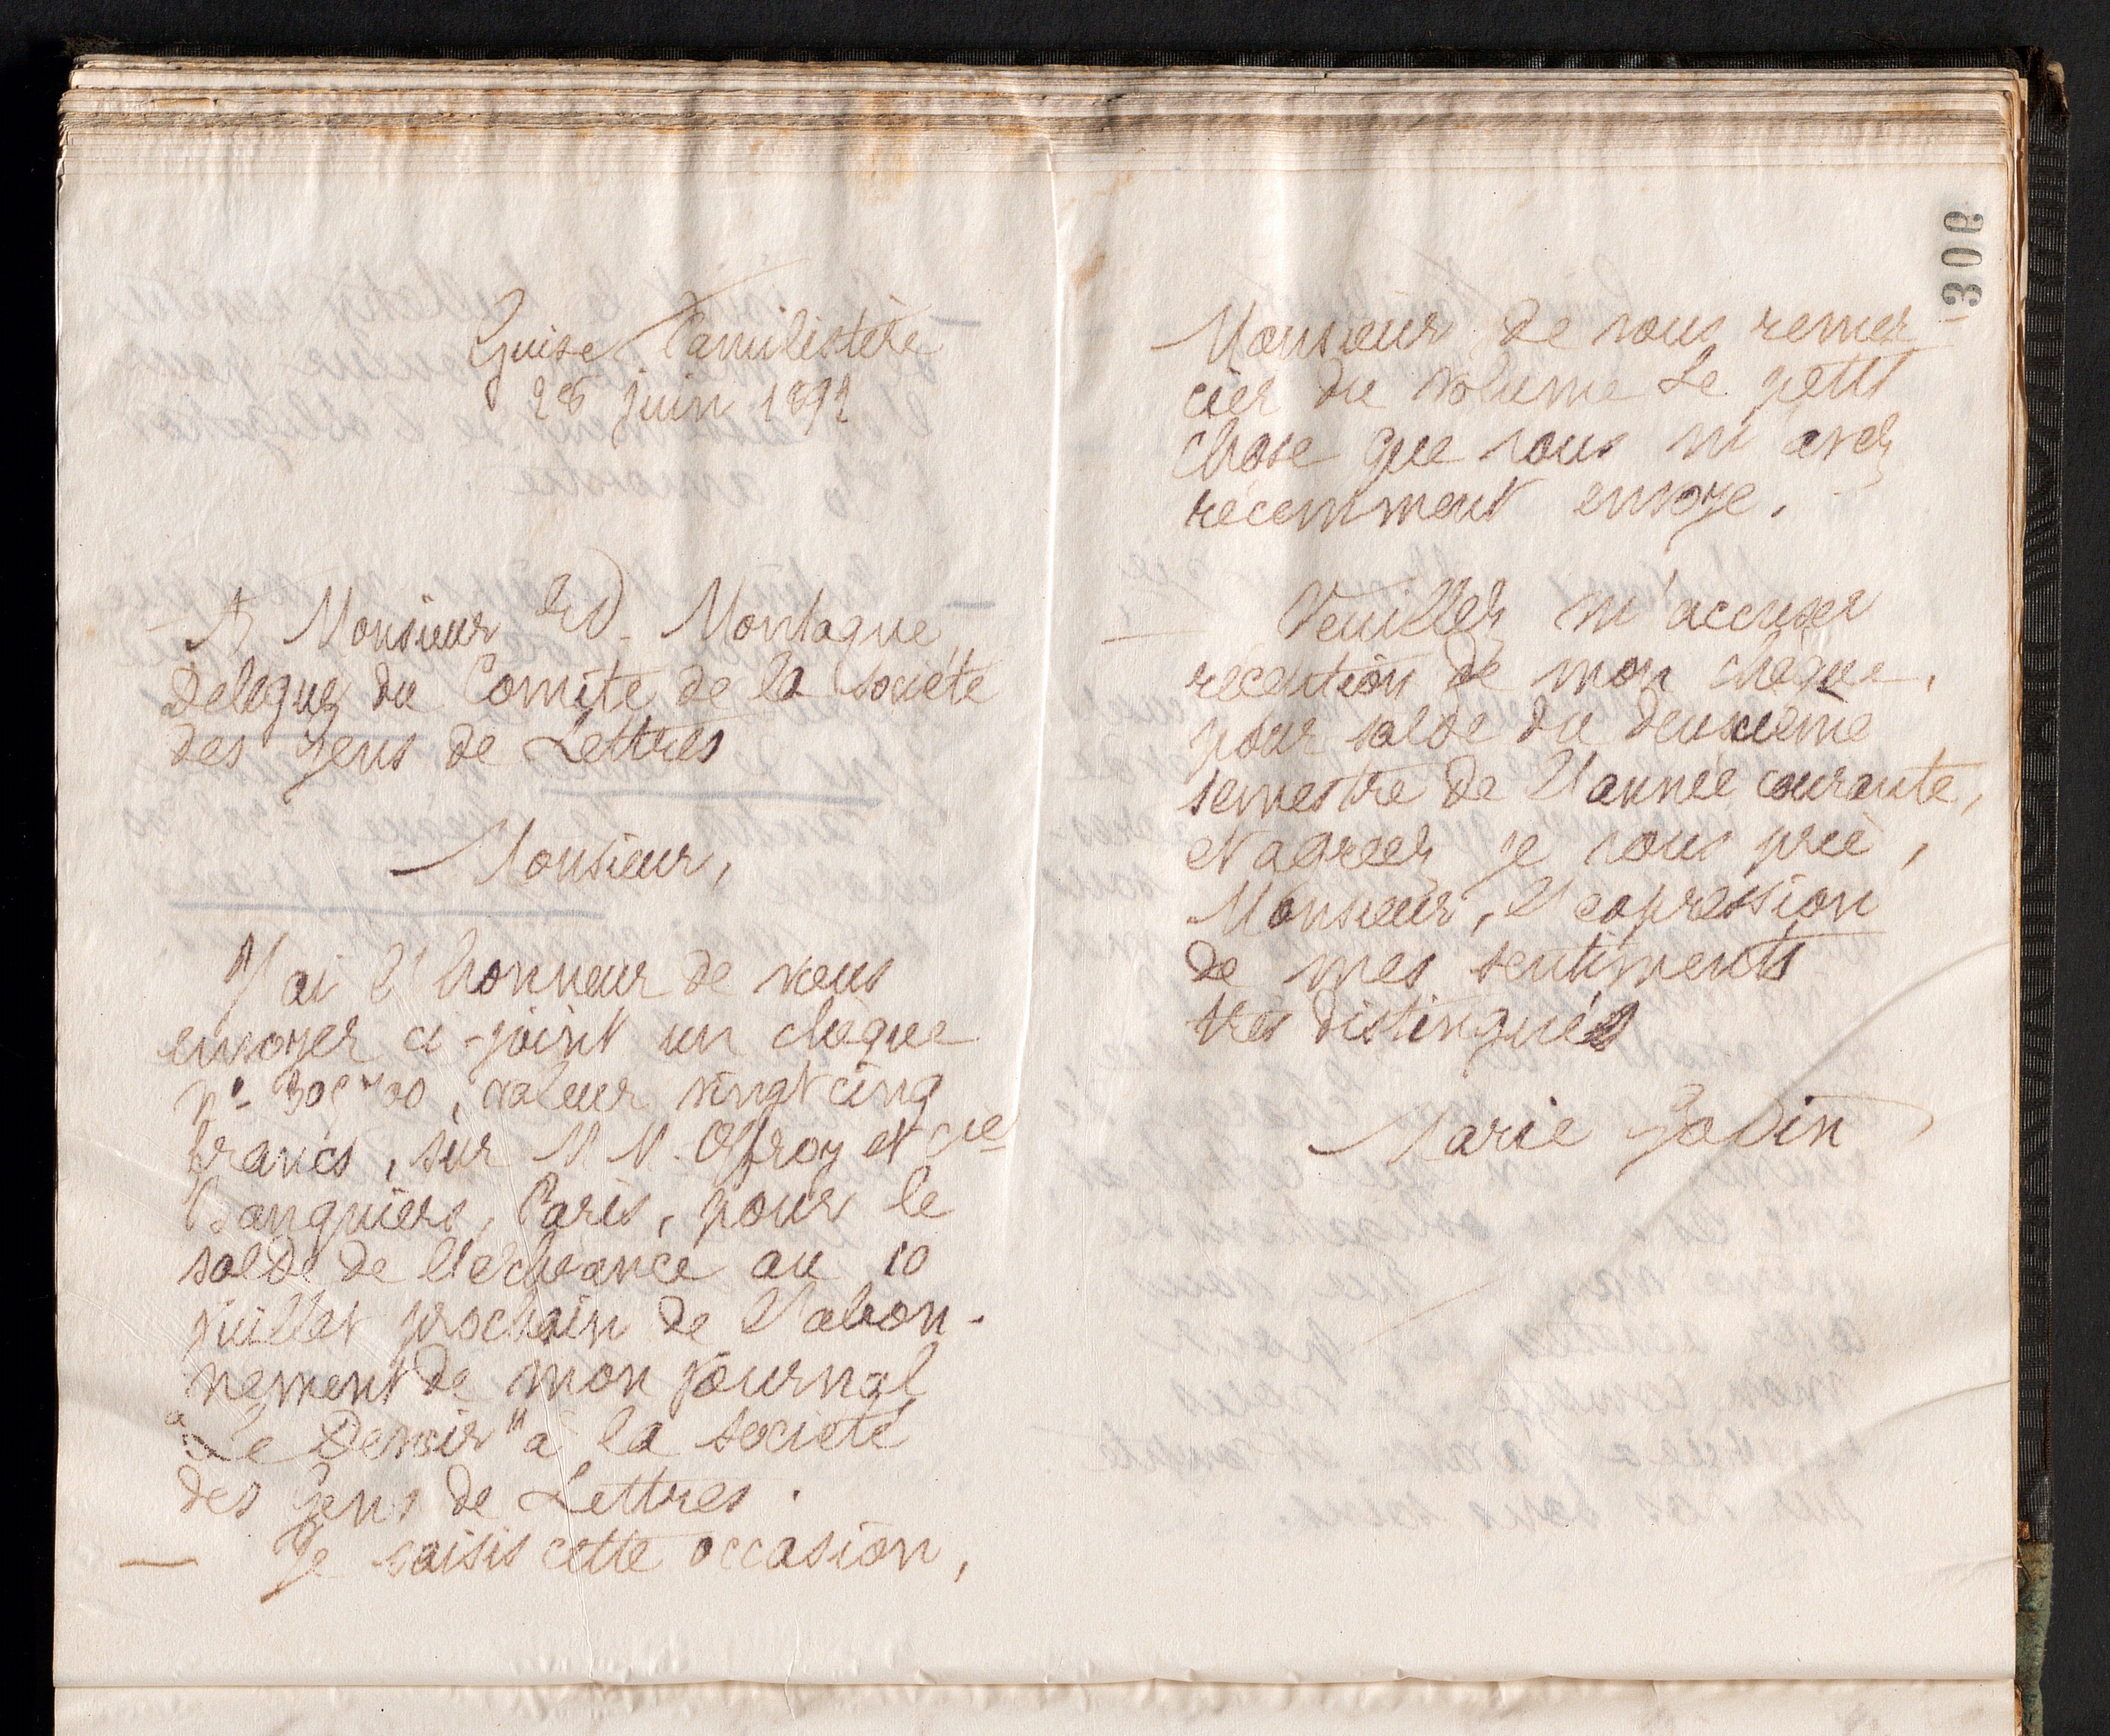 Guise Familistère
28 juin 1892
A Monsieur Ed. Montagne,
Délégué du Comité de la Société
des gens de Lettres
Monsieur,
J'ai l'honneur de vous
envoyer ci-joint un chèque
valeur vingt cinq
francs, sur M M. Offroy et Cie
Banquiers, Paris, pour le
solde de l'échéance au 10
juillet prochain de l'abon-
nement de mon journal
"Le Devoir" à la société
des Gens de Lettres.
Je saisis cette occasion,
306
Monsieur de vous remer-
cier du volume Le petit
chose que vous m'avez
récemment envoyé.
Veuillez m'accuser
réception de mon chèque,
pour solde du deuxième
semestre de l'année courante,
et agréez je vous prie,
Monsieur, l'expression
de mes sentiments
très distingués
Marie Godin